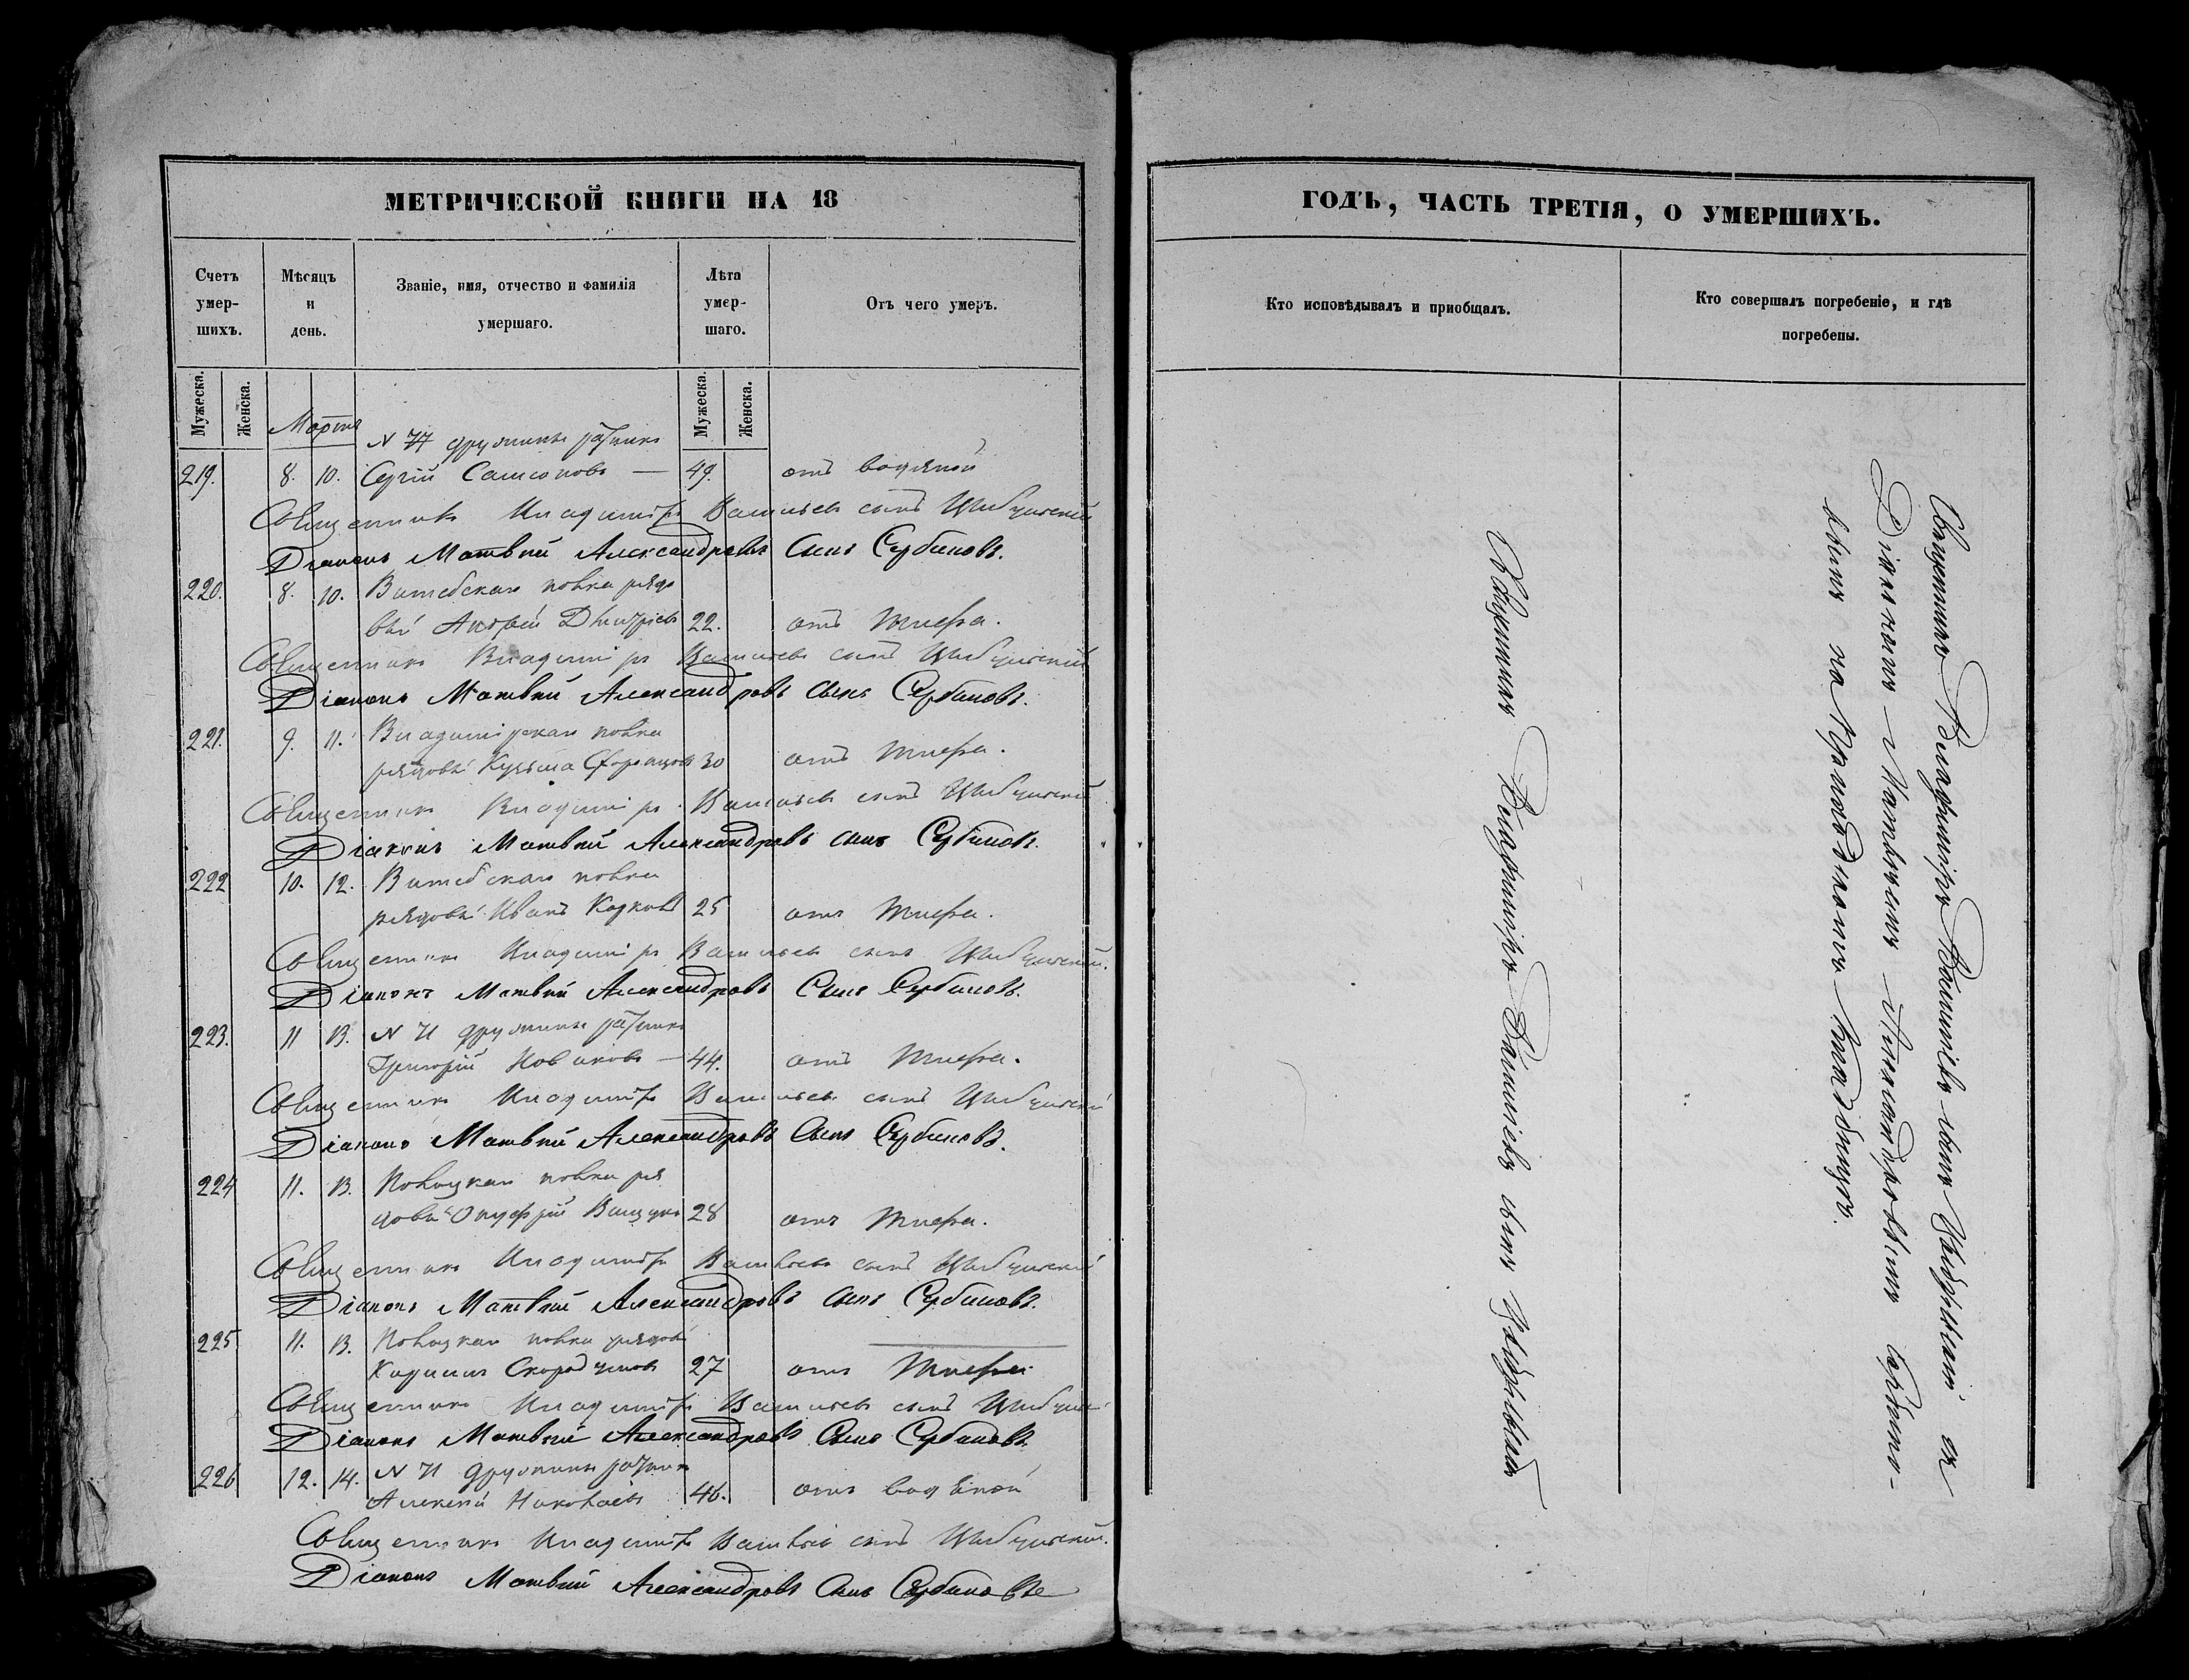 МЕТРИЧЕСКОЙ КНИГИ НА 18
Счетъ умер-шихъ.
Мѣсяцъ и день.
Званіе, имя, отчество и фамилія умершаго.
Лѣта умер-шаго.
Отъ чего умеръ.
Мужеска.
Женска.
Мужеска.
Женска.
Марта
N 77 дружины ратникъ
219. 8. 10. Сергій Самсоновъ — 49. отъ водяной
Священникъ Владиміръ Васильевъ сынъ
Діаконъ Матвѣй Александровъ Сынъ Сербиновъ.
220. 8. 10. Витебскаго полка рядо
вый Андрей Дмитріевъ 22. отъ тифа.
Священникъ Владиміръ Васильевъ сынъ
Діаконъ Матвѣй Александровъ Сынъ Сербиновъ.
221. 9. 11. Владимірскаго полка
рядовый Кузьма 30 отъ тифа.
Священникъ Владиміръ Васильевъ сынъ
Діаконъ Матвѣй Александровъ сынъ Сербиновъ.
222 10. 12. Витебскаго полка
рядовый Иванъ 25 отъ тифа.
Священникъ Владиміръ Васильевъ сынъ
Діаконъ Матвѣй Александровъ Сынъ Сербиновъ.
223. 11 13. N 71 дружины ратникъ
Григорій Новиковъ — 44. отъ тифа.
Священникъ Владиміръ Васильевъ сынъ
Діаконъ Матвѣй Александровъ Сынъ Сербиновъ.
224 11. 13. Полоцкаго полка ря
довый Онуфрій 28 отъ тифа.
Священникъ Владиміръ Васильевъ сынъ
Діаконъ Матвѣй Александровъ Сынъ Сербиновъ.
225 11. 13. Полоцкаго полка рядовый
27 отъ тифа
Священникъ Владиміръ Васильевъ сынъ
Діаконъ Матвѣй Александровъ Сынъ Сербиновъ
226 12. 14. N 71 дружины ратникъ
Алексѣй Николаевъ 46. отъ водяной
Священникъ Владиміръ Васильевъ сынъ
Діаконъ Матвѣй Александровъ Сынъ Сербиновъ
ГОДЪ, ЧАСТЬ ТРЕТІЯ, О УМЕРШИХЪ.
Кто исповѣдывалъ и приобщалъ.
Кто совершалъ погребеніе, и гдѣ погребены.
Священникъ Владиміръ Васильевъ сынъ
Священникъ Владиміръ Васильевъ сынъ съ
Діакономъ Матвѣемъ Александровымъ Сербино-
вымъ на кладбищѣ.